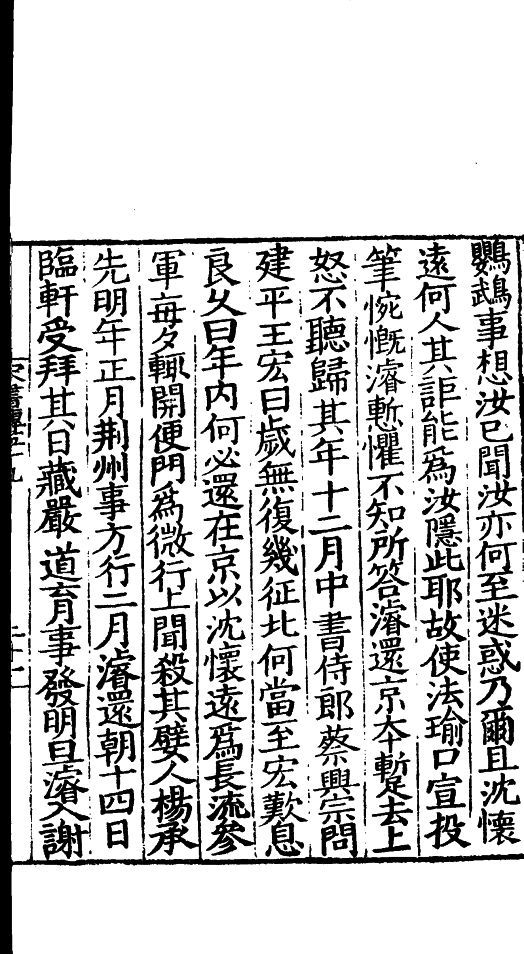 鸚鵡事想汝已聞汝亦何至迷惑乃爾且沈懷
遠何人其詎能爲汝隱此耶故使法瑜口宣投
筆惋慨濬慙懼不知所答濬還京本蹔去上
怒不聽歸其年十二月中書侍郎蔡興宗問
建平王宏曰歲無復幾征北何當至宏歎息
良久曰年内何必還在京以沈懷遠爲長流參
軍每夕輒開便門爲微行上聞殺其嬖人楊承
先明年正月荆州事方行二月濬還朝十四日
臨軒受拜其日藏嚴道育事發明旦濬入謝